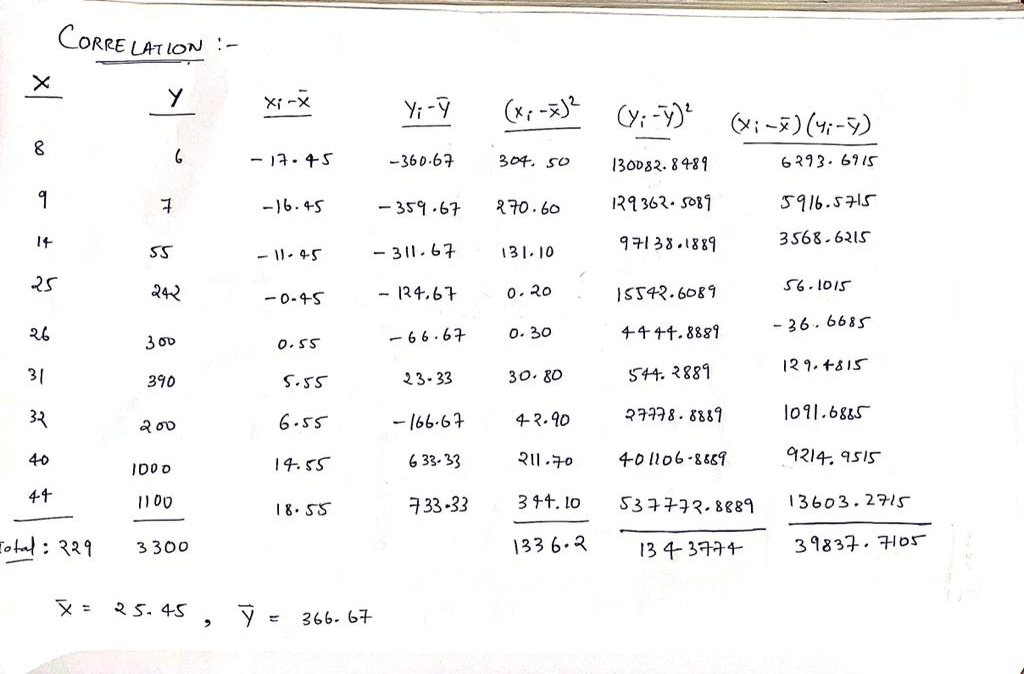 CORRELATION :-
X Y Xi-x̄ Yi-ȳ (Xi-x̄)² (Yi-ȳ)² (Xi-x̄)(Yi-ȳ)
8 6 -17.45 -360.67 304.50 130082.8489 6293.6915
9 7 -16.45 -359.67 270.60 129362.5089 5916.5715
14 55 -11.45 -311.67 131.10 97138.1889 3568.6215
25 242 -0.45 -124.67 0.20 15542.6089 56.1015
26 300 0.55 -66.67 0.30 4444.8889 -36.6685
31 390 5.55 23.33 30.80 544.2889 129.4815
32 200 6.55 -166.67 42.90 27778.8889 1091.6885
40 1000 14.55 633.33 211.70 401106.8889 9214.9515
44 1100 18.55 733.33 344.10 537772.8889 13603.2715
Total : 229 3300 1336.2 1343774 39837.7105
x̄ = 25.45 , ȳ = 366.67